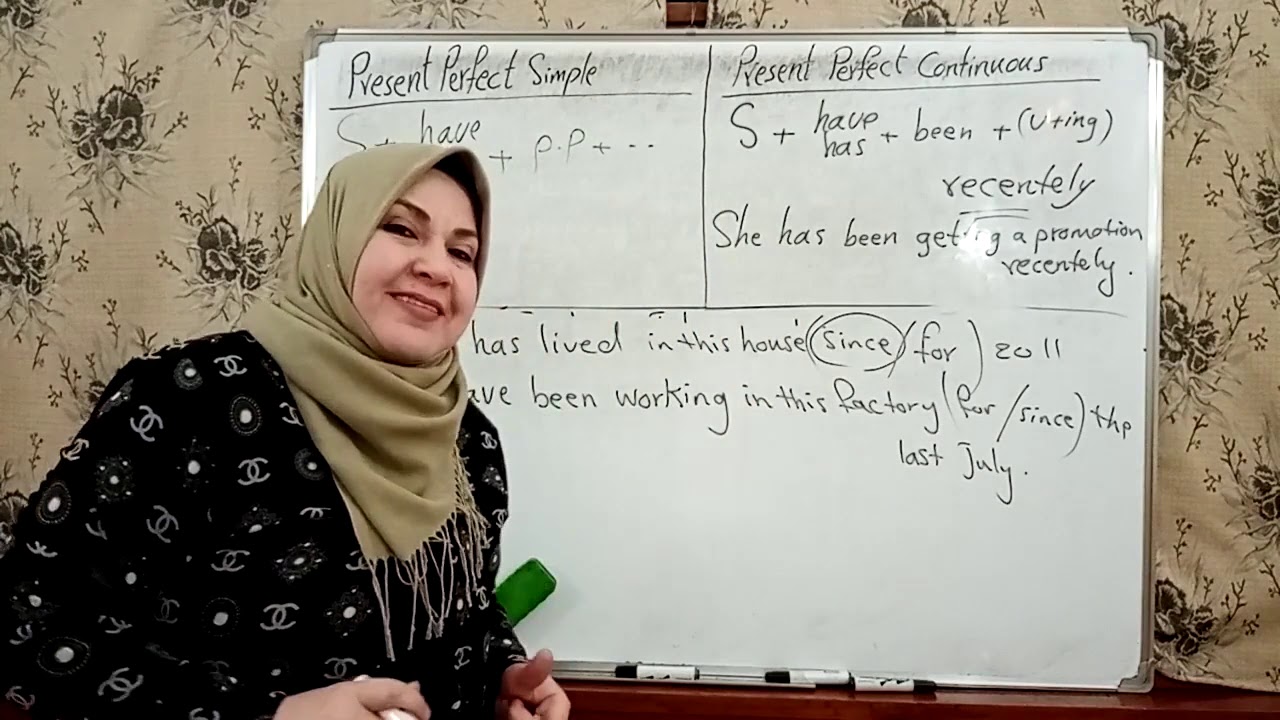 Present Perfect Simple
S + have + p.p + ...
Present Perfect Continuous
S + have has + been + (v+ing)
recentely
She has been geting a promotion
recentely.
has lived in this house (since/for) 2011
ave been working in this factory (for/since) the
last july.